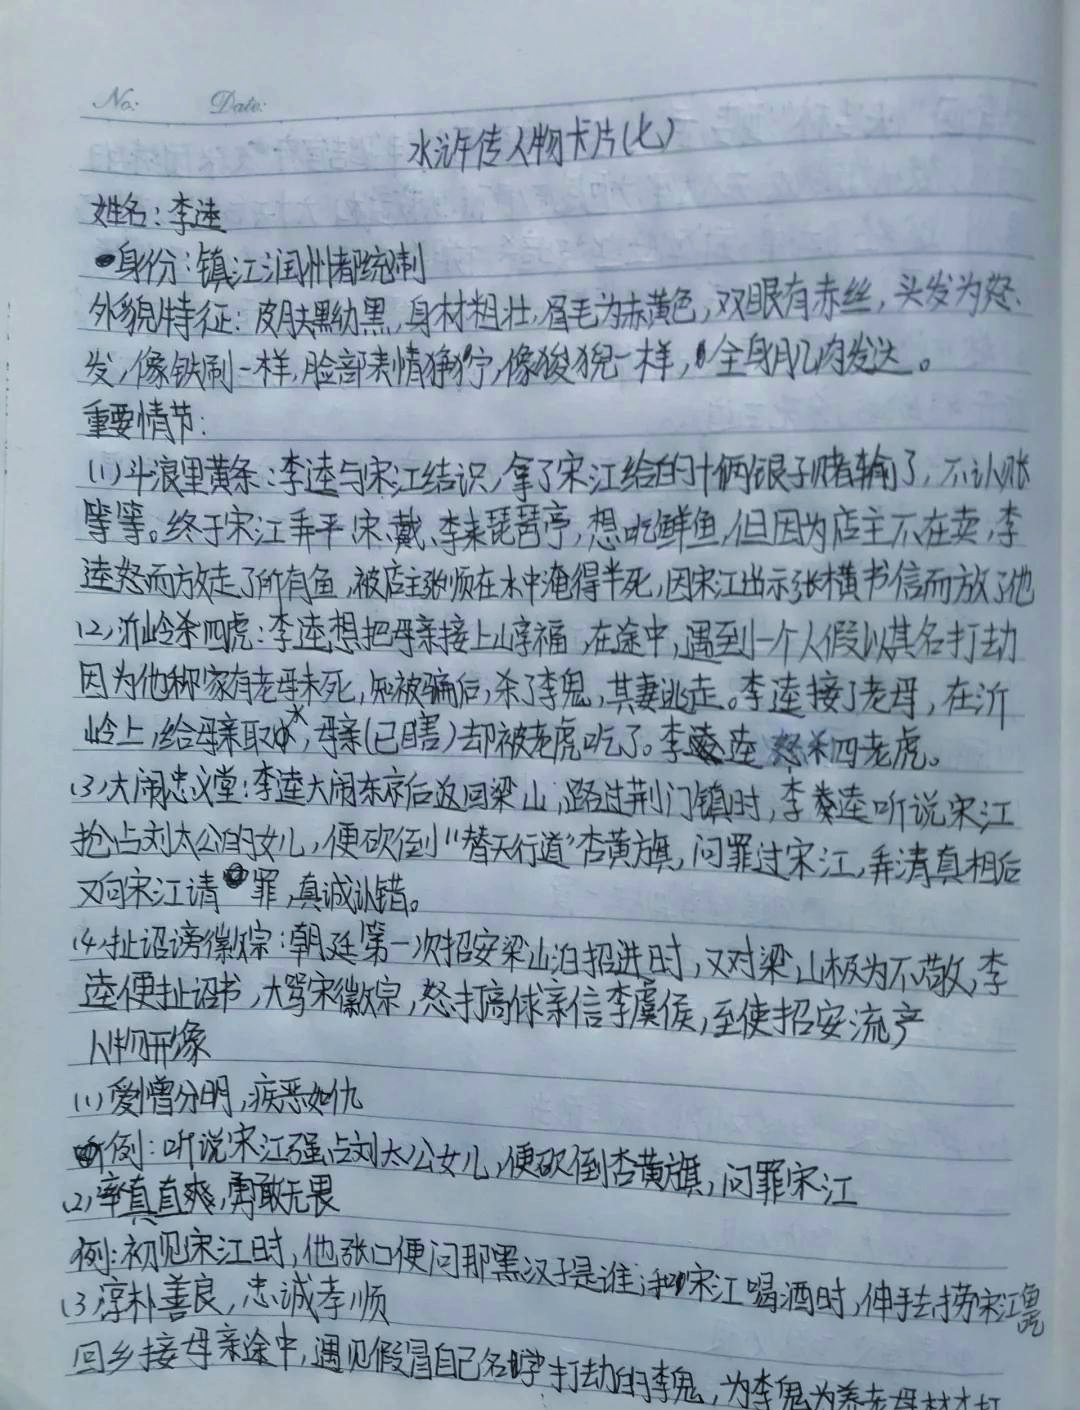 No:
Date:
水浒传人物卡片(七)
姓名:李逵
身份:镇江润州都统制
外貌特征:皮肤黝黑,身材粗壮,眉毛为赤黄色,双眼有赤丝,头发为怒
发,像铁刷一样,脸部表情狰狞,像狻猊一样,全身肌肉发达。
重要情节:
(1)斗浪里黄条:李逵与宋江结识,拿了宋江给的十俩银子赌输了,不认账
等等。终于宋江弄平,宋、戴、李来琵琶亭,想吃鲜鱼,但因为店主不在卖,李
逵怒而放走了所有鱼,被店主张顺在水中淹得半死,因宋江出示张横书信而放了他
(2)沂岭杀四虎:李逵想把母亲接上山享福,在途中,遇到一个人假以其名打劫
因为他称家有老母未死,知被骗后,杀了李鬼,其妻逃走。李逵接了老母,在沂
岭上,给母亲取水,母亲(已瞎)却被老虎吃了。李逵怒杀四老虎。
(3)大闹忠义堂:李逵大闹东京后返回梁山,路过荆门镇时,李逵听说宋江
抢占刘太公的女儿,便砍倒"替天行道"杏黄旗,问罪过宋江,弄清真相后
又向宋江请罪,真诚认错。
(4)扯诏谤徽宗:朝廷第一次招安梁山泊招进时,又对梁山极为不敬,李
逵便扯诏书,大骂宋徽宗,怒打高俅亲信李虞侯,至使招安流产
人物形像
(1)爱憎分明,疾恶如仇
例:听说宋江强占刘太公女儿,便砍倒杏黄旗,问罪宋江
(2)率真直爽,勇敢无畏
例:初见宋江时,他张口便问那黑汉子是谁;和宋江喝酒时,伸手去捞宋江鱼吃
(3)淳朴善良,忠诚孝顺
回乡接母亲途中,遇见假冒自己名字打劫的李鬼,为李鬼为养老母材才打